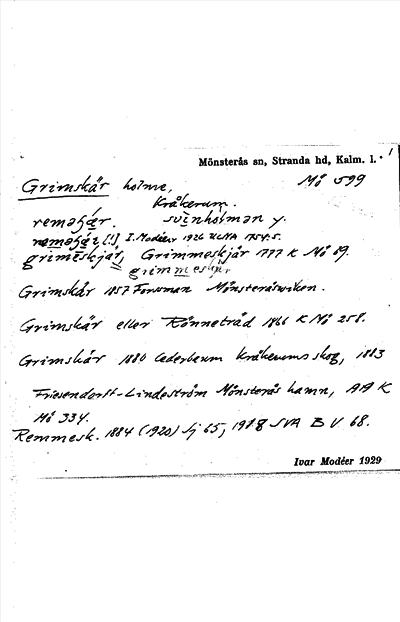 Mönsterås sn, Stranda hd, Kalm. l. 1
Grimskär holme, Mö 599
Kråkerum.
remǝʂǽr. svinholmǝn y.
remǝʂǽr [!] I. Modéer 1926 ULMA 1754:5.
grimeskjär, Grimmeskjär 1777 K Mö 89.
grimmeskjär
Grimskär 1857 Forsman Mönsteråsviken.
Grimskär eller Rönnetråd 1866 K Mö 258.
Grimskär 1880 Cederbaum Kråkerums skog, 1883
Friesendorff-Lindeström Mönsterås hamn, AA K
Mö 334.
Remmesk. 1884 (1920) Sj 65, 1928 SVA B V 68.
Ivar Modéer 1929